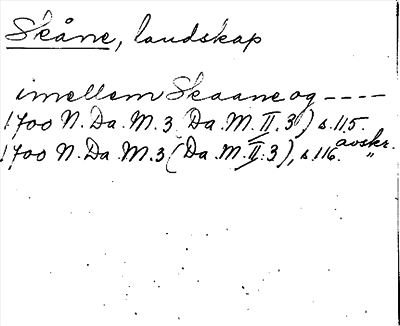 Skåne, landskap
imellem Skaane og ----
1700 N. Da. M. 3 (Da. M. II. 3) s. 115.
1700 N. Da. M. 3 (Da. M. II. 3), s. 116. avskr. "